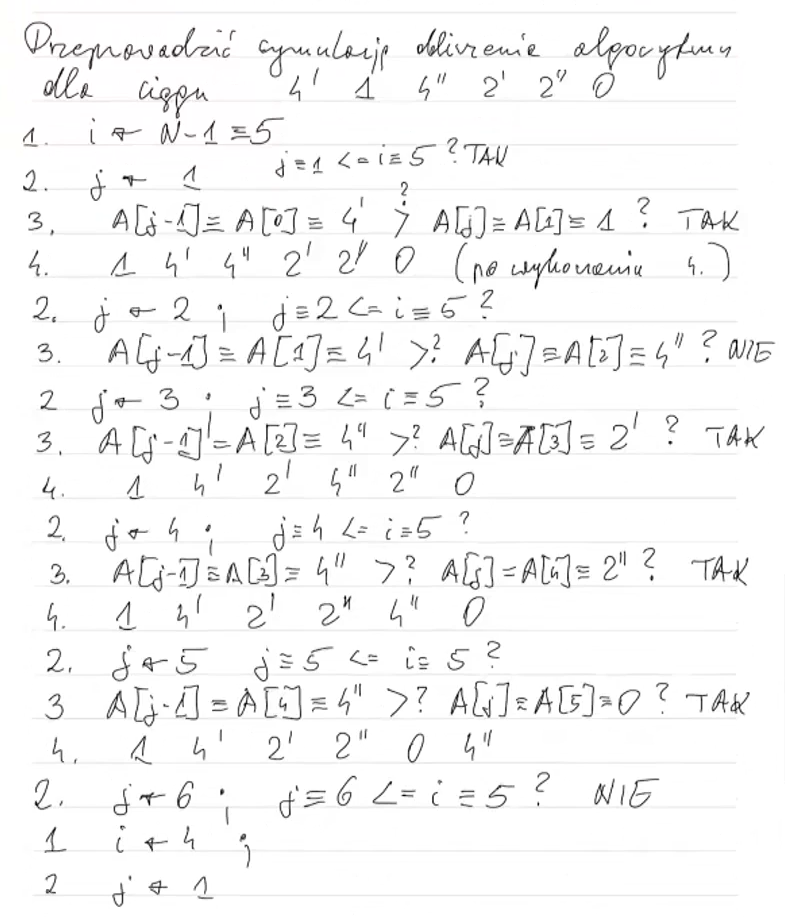 Przeprowadzić symulację działania algorytmu
dla ciągu 4' 1 4" 2' 2" 0
1. i ← N-1 ≡ 5
2. j ← 1 j≡1 <= i≡5 ? TAK
3. A[j-1] ≡ A[0] ≡ 4' >? A[j] ≡ A[1] ≡ 1 ? TAK
4. 1 4' 4" 2' 2" 0 (po wykonaniu 4.)
2. j ← 2 ; j≡2 <= i≡5 ?
3. A[j-1] ≡ A[1] ≡ 4' >? A[j] ≡ A[2] ≡ 4" ? NIE
2 j ← 3 ; j≡3 <= i≡5 ?
3. A[j-1] = A[2] ≡ 4" >? A[j] ≡ A[3] ≡ 2' ? TAK
4. 1 4' 2' 4" 2" 0
2. j ← 4 ; j≡4 <= i≡5 ?
3. A[j-1] ≡ A[3] ≡ 4" >? A[j] = A[4] ≡ 2" ? TAK
4. 1 4' 2' 2" 4" 0
2. j ← 5 j≡5 <= i≡5 ?
3 A[j-1] ≡ A[4] ≡ 4" >? A[j] ≡ A[5] ≡ 0 ? TAK
4. 1 4' 2' 2" 0 4"
2. j ← 6 ; j≡6 <= i≡5 ? NIE
1 i ← 4 ;
2 j ← 1